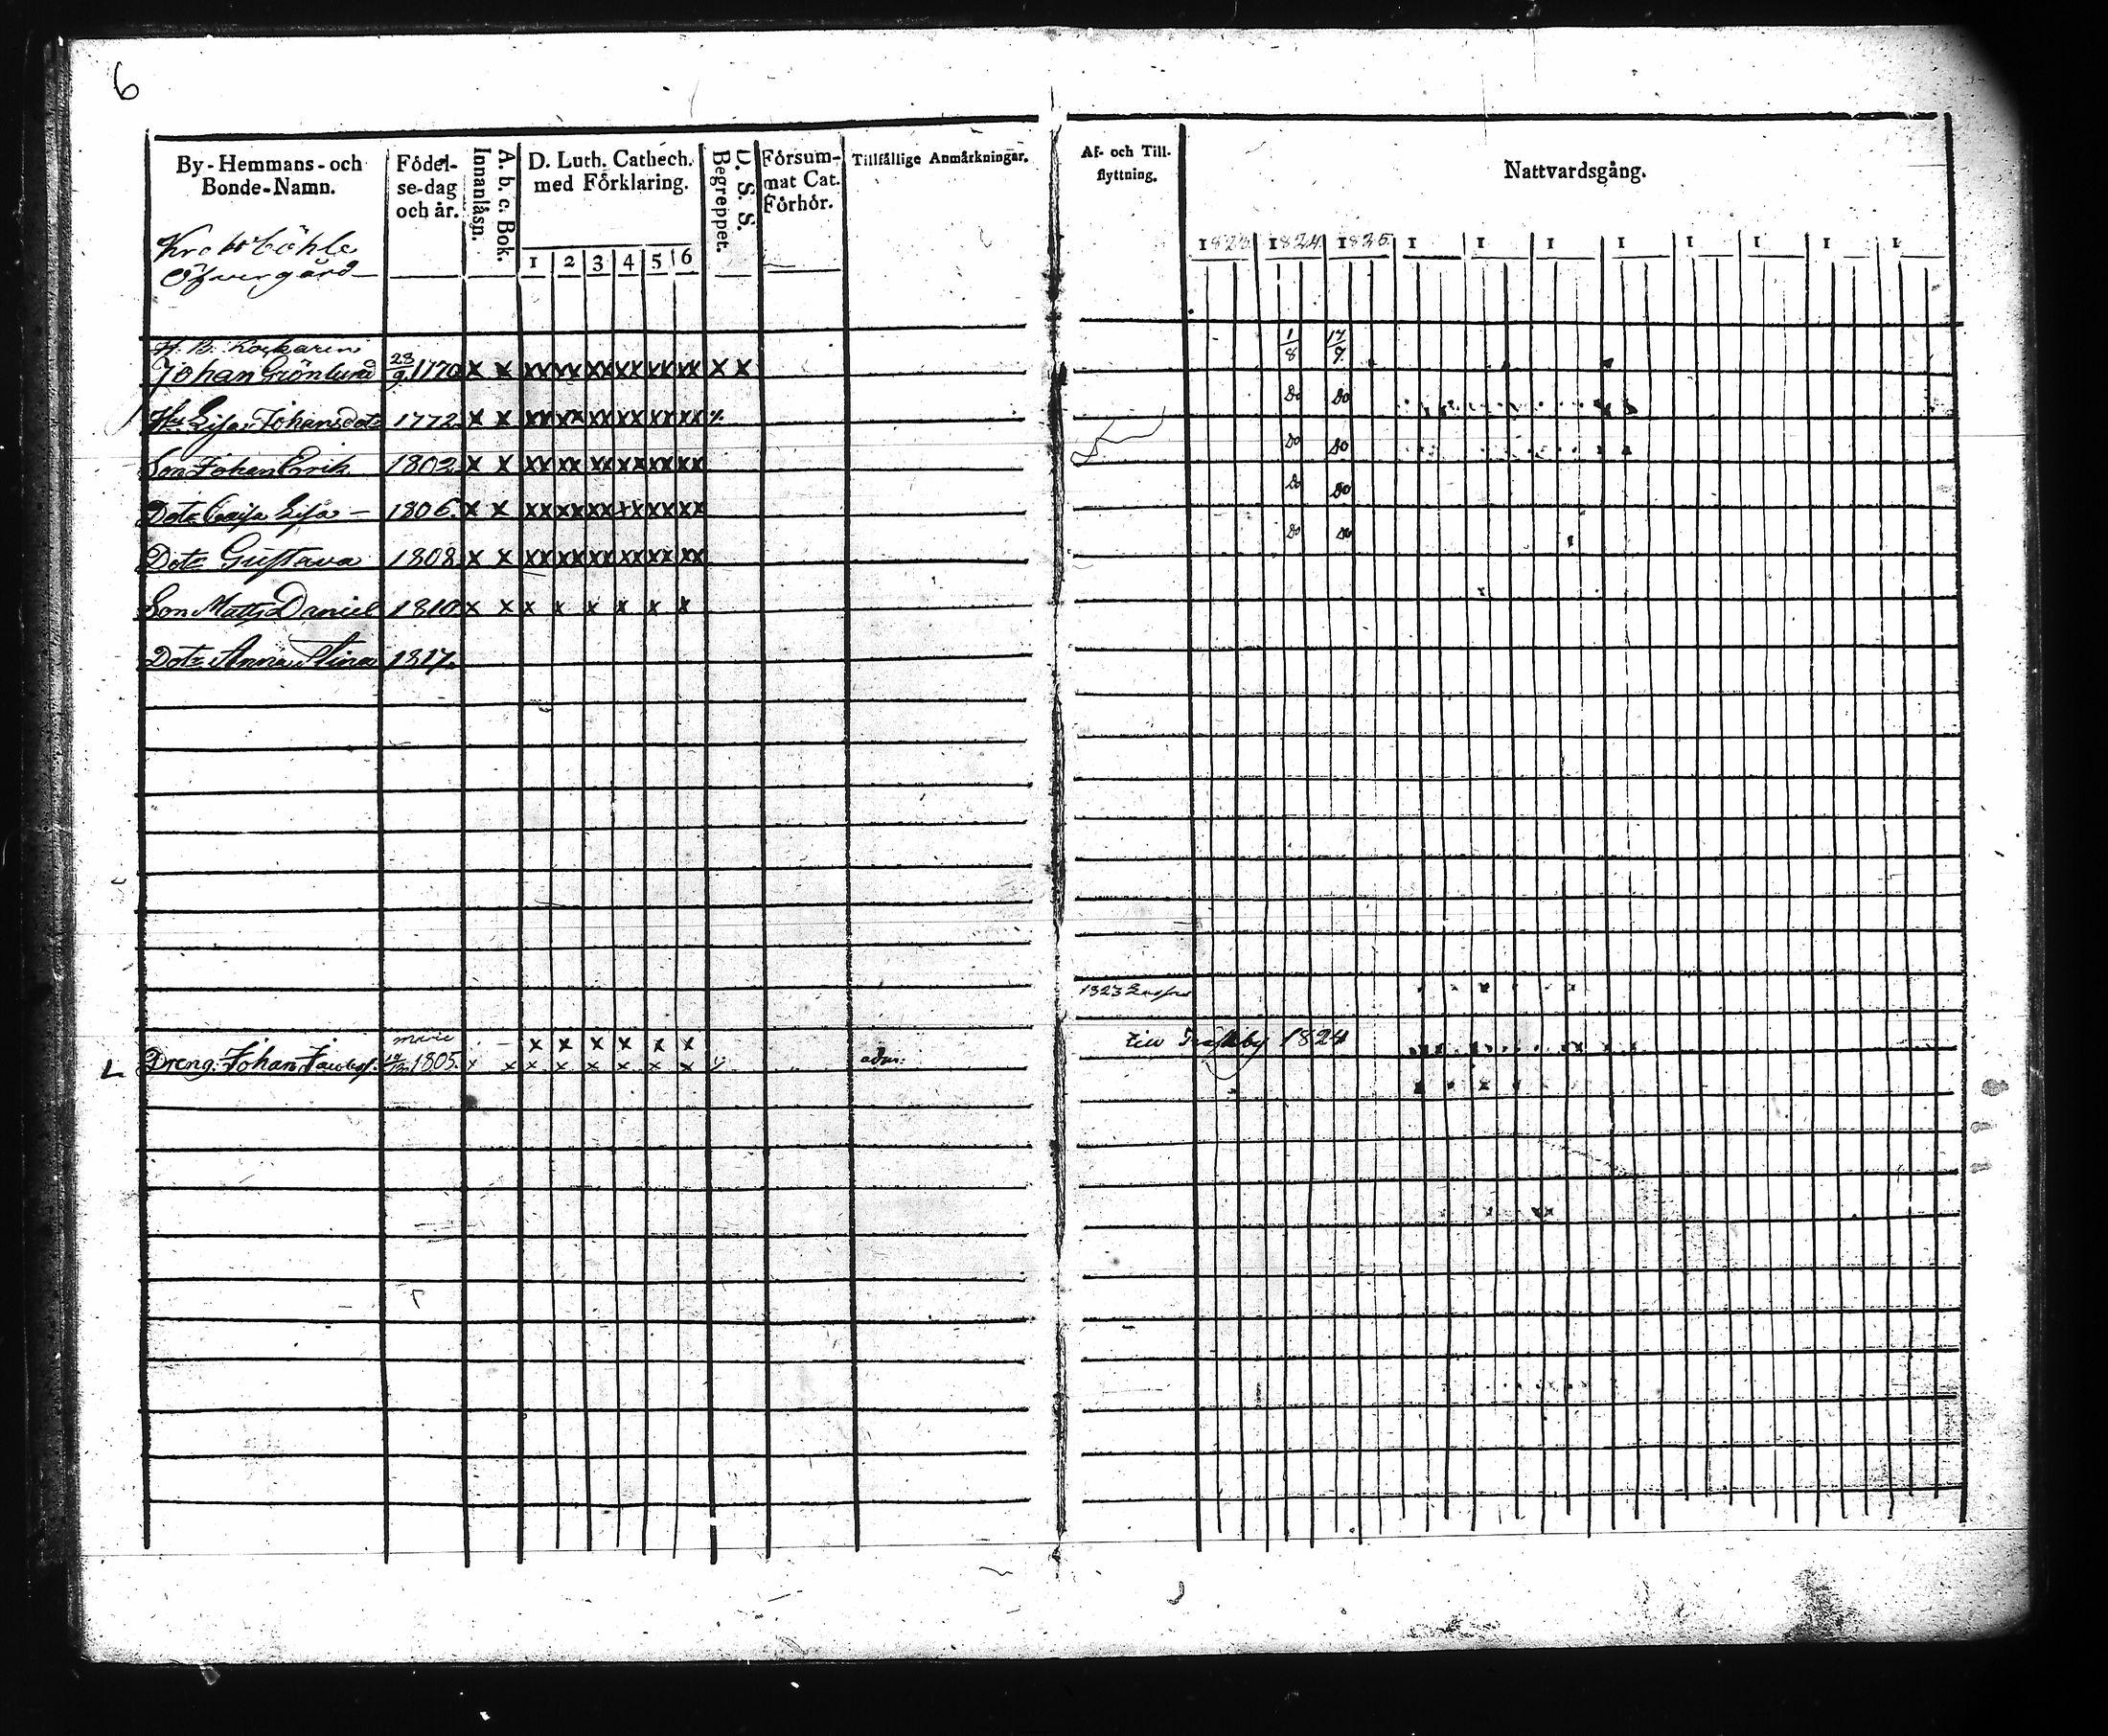 6
By-Hemmans-och Bonde-Namn.
Födel-se-dag och år.
Innanläsn.
A. b. c. Bok.
D. Luth. Cathech. med Förklaring.
1 2 3 4 5 6
Begreppet.
Försum-mat Cat. Förhör.
Tillfällige Anmärkningar.
Af- och Till-flyttning.
Nattvardsgång.
1823. 1824. 1825. 1 1 1 1 1 1 1 1
Öfvergård
Johan Grönlund 23/9 1770 x x xx xx xx xx xx xx x x 1/8 17/9
Lisa Johansdotr 1772 x x xx xx xx xx xx xx Do Do
Son Johan Erik 1802 x x xx xx xx xx xx xx Do Do
Dotr Cajsa Lisa 1806. x x xx xx xx xx xx xx Do Do
Dotr Gustava 1808 x x xx xx xx xx xx xx Do Do
Son Matts Daniel 1810 x x x x x x x x
Dotr Anna Stina 1817.
1823
x x x x x x till 1824
L Dreng. Johan Jacobss. 1805. x x x x x x x x adm: